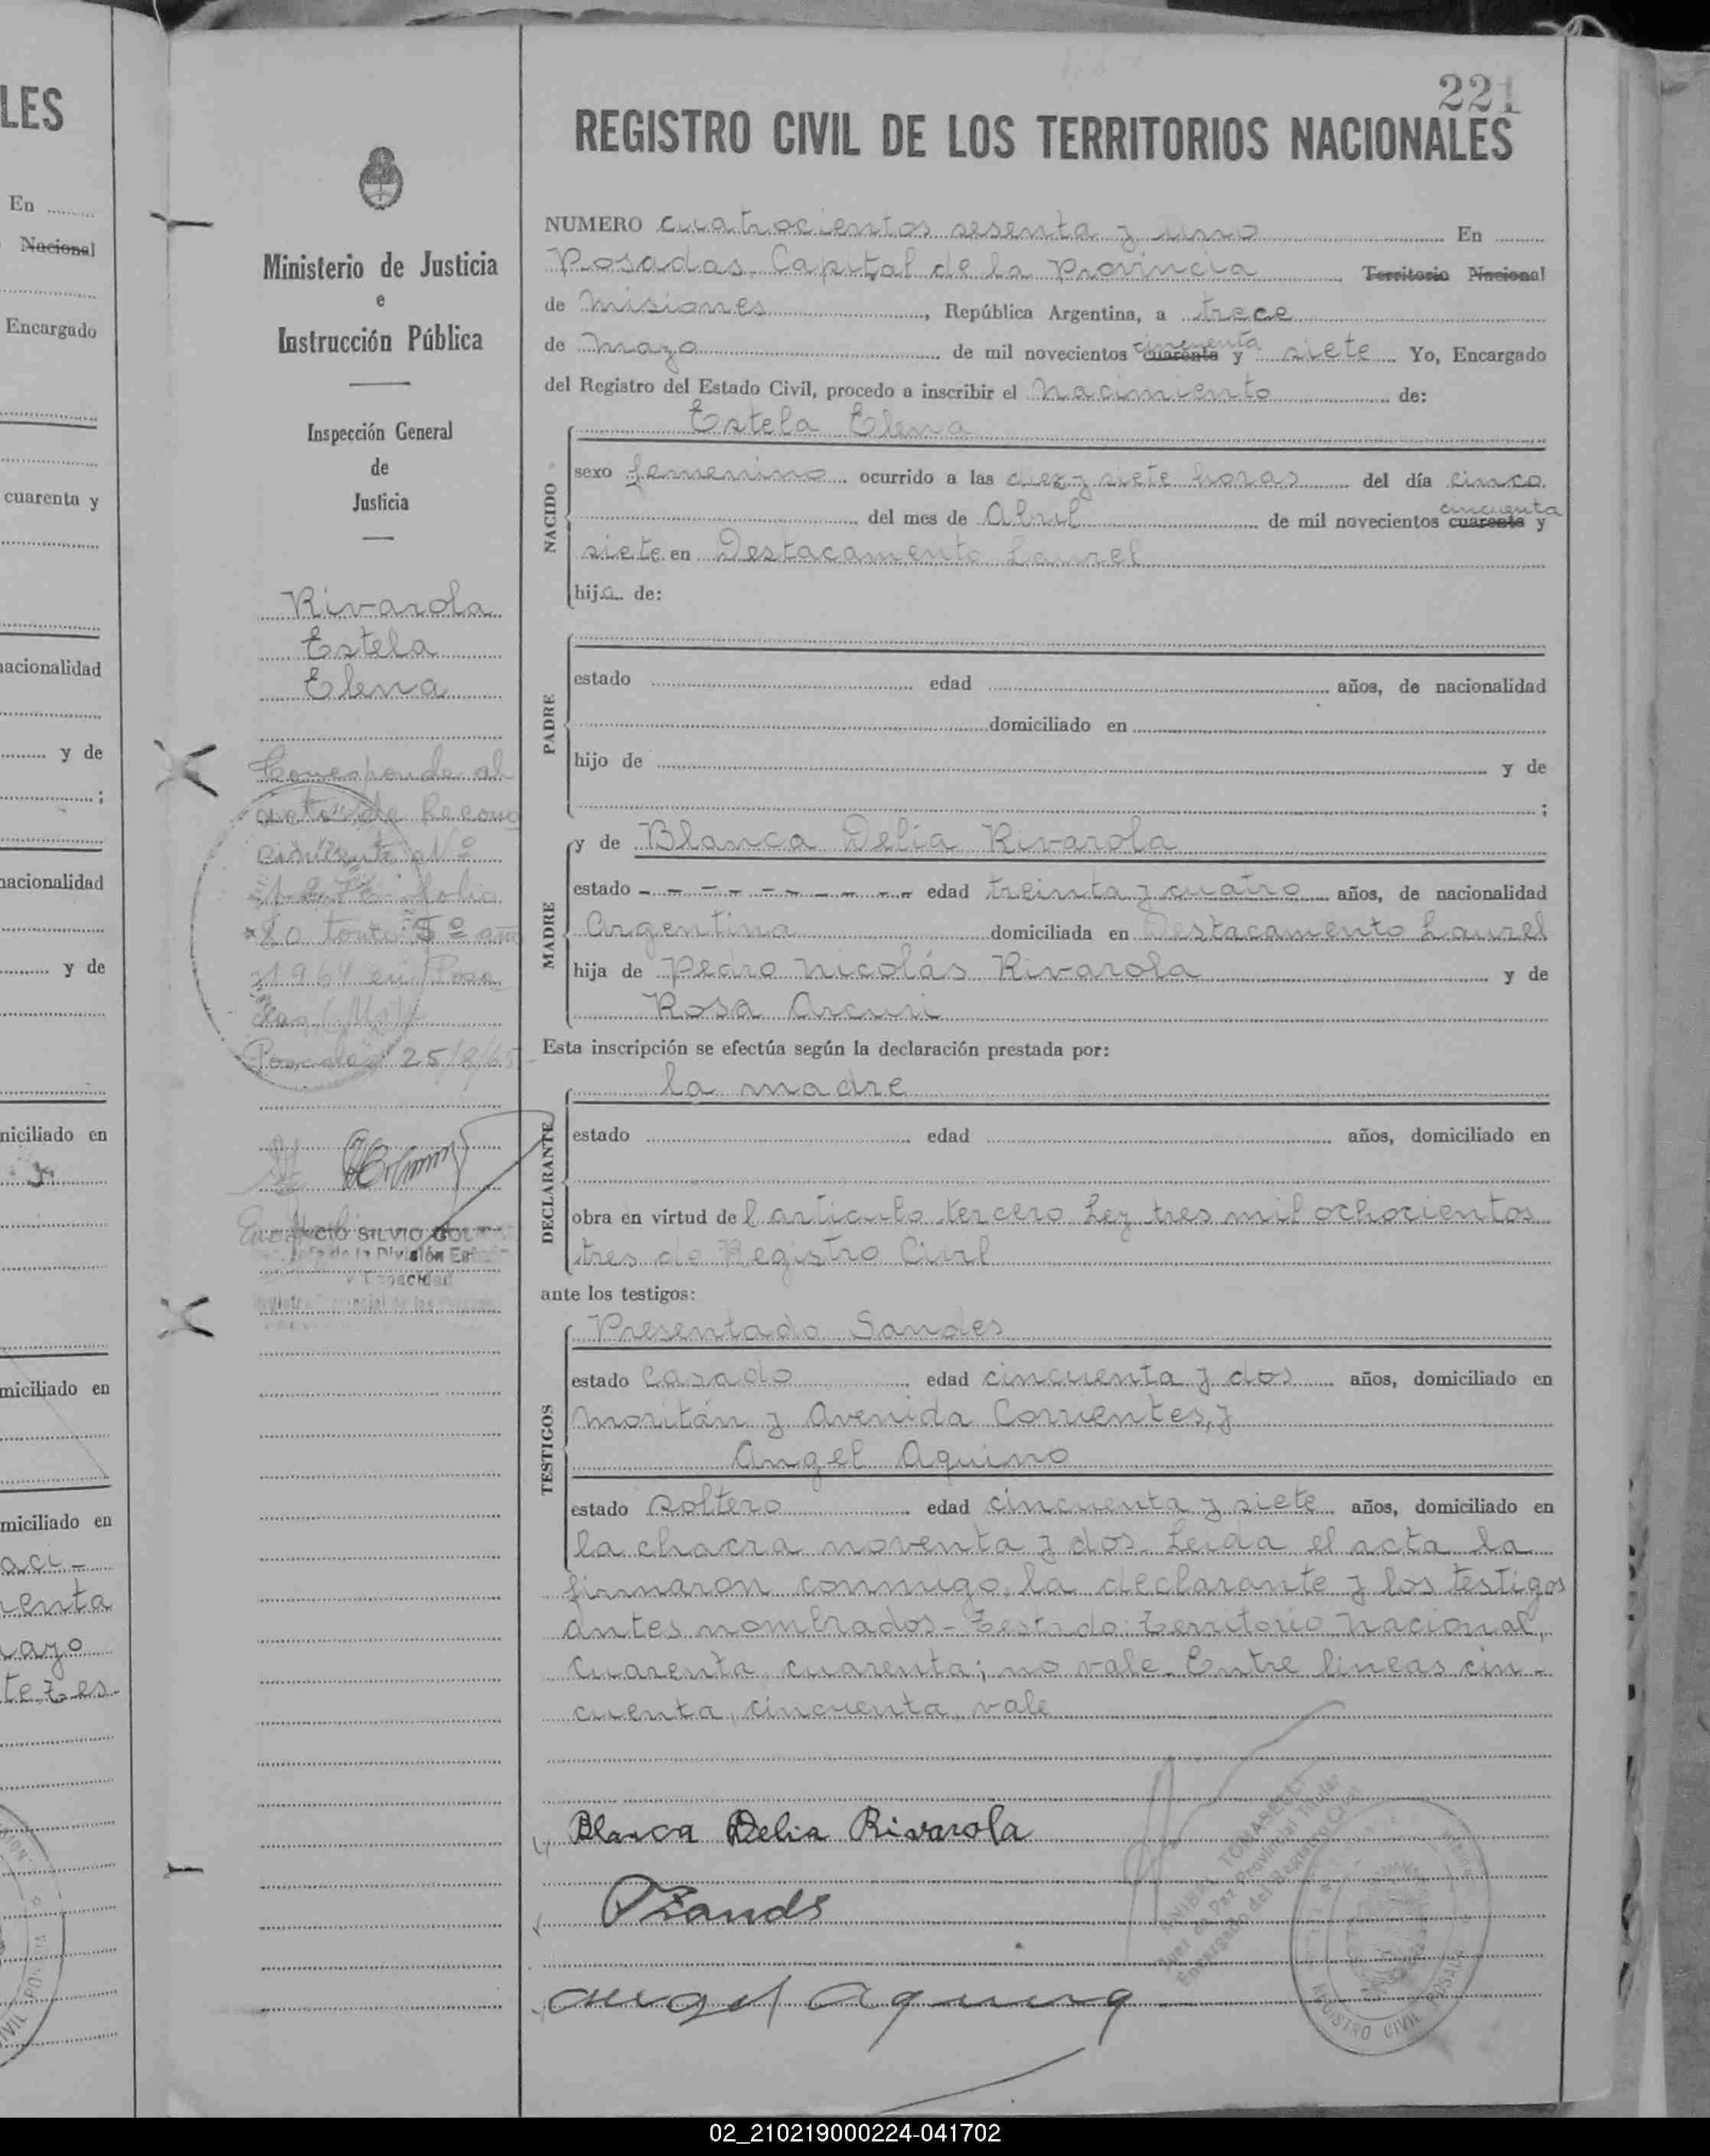 LES
En
Nacional
Encargado
cuarenta y
nacionalidad
y de
;
nacionalidad
y de
miciliado en
miciliado en
miciliado en
aci-
renta
mayo
te. tes-
Ministerio de Justicia
e
Instrucción Pública
Inspección General
de
Justicia
Rivarola
Estela
Elena
Corresponde al
acta de Recono
cimiento Nº
folio
80 tomo 5º año
1964 en Posa
das (Ms)
Posadas 25/8/65
CIO SILVIO GOL
de la División Es
y Capacidad
221
REGISTRO CIVIL DE LOS TERRITORIOS NACIONALES
NUMERO cuatrocientos sesenta y uno En
Posadas, Capital de la Provincia Territorio Nacional
de Misiones, República Argentina, a trece
de Mayo de mil novecientos cuarenta cincuenta y siete Yo, Encargado
del Registro del Estado Civil, procedo a inscribir el nacimiento de:
Estela Elena
NACIDO
sexo femenino ocurrido a las diez y siete horas del día cinco
del mes de Abril de mil novecientos cuarenta cincuenta y
siete en Destacamento Laurel
hija de:
PADRE
estado edad años, de nacionalidad
domiciliado en
hijo de y de
;
y de Blanca Delia Rivarola
MADRE
estado - - - - - - - - edad treinta y cuatro años, de nacionalidad
Argentina domiciliada en Destacamento Laurel
hija de Pedro Nicolás Rivarola y de
Rosa Arcuri
Esta inscripción se efectúa según la declaración prestada por:
la madre
DECLARANTE
estado edad años, domiciliado en
obra en virtud del artículo tercero Ley tres mil ochocientos
tres de Registro Civil
ante los testigos:
Presentado Sandes
TESTIGOS
estado Casado edad cincuenta y dos años, domiciliado en
Moritán y Avenida Corrientes, y
Angel Aquino
estado soltero edad cincuenta y siete años, domiciliado en
la chacra noventa y dos. Leida el acta la
firmaron conmigo, la declarante y los testigos
antes nombrados- Testado: Territorio Nacional,
cuarenta, cuarenta; no vale. Entre lineas cin-
cuenta, cincuenta, vale
Blanca Delia Rivarola
PZands
Angel Aquino
Juez de Paz Provincial Titular
Encargado del Registro Civil
REGISTRO CIVIL POSADAS
02_210219000224-041702